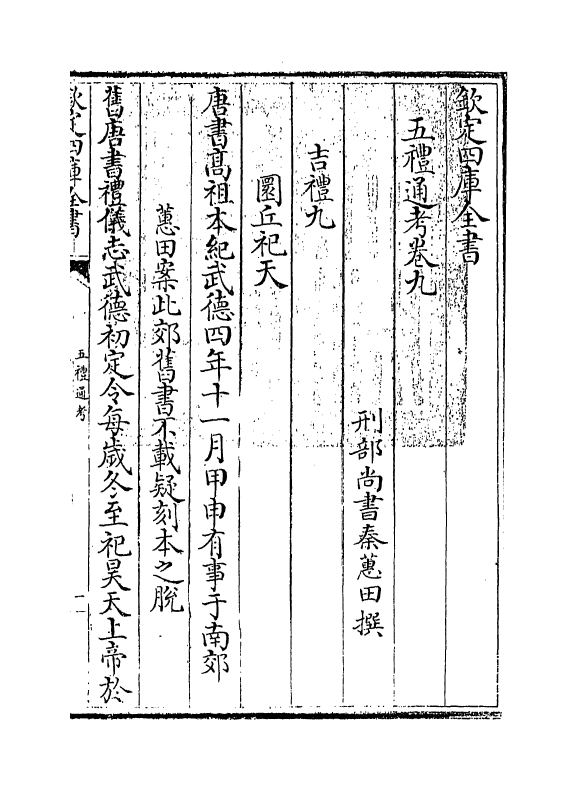 欽定四庫全書
五禮通考卷九
刑部尚書秦蕙田撰
吉禮九
圜丘祀天
唐書髙祖本紀武德四年十一月甲申有事于南郊
蕙田案此郊舊書不載疑刻本之脫
舊唐書禮儀志武德初定令每歲冬至祀昊天上帝於
欽定四庫全書
五禮通考
一